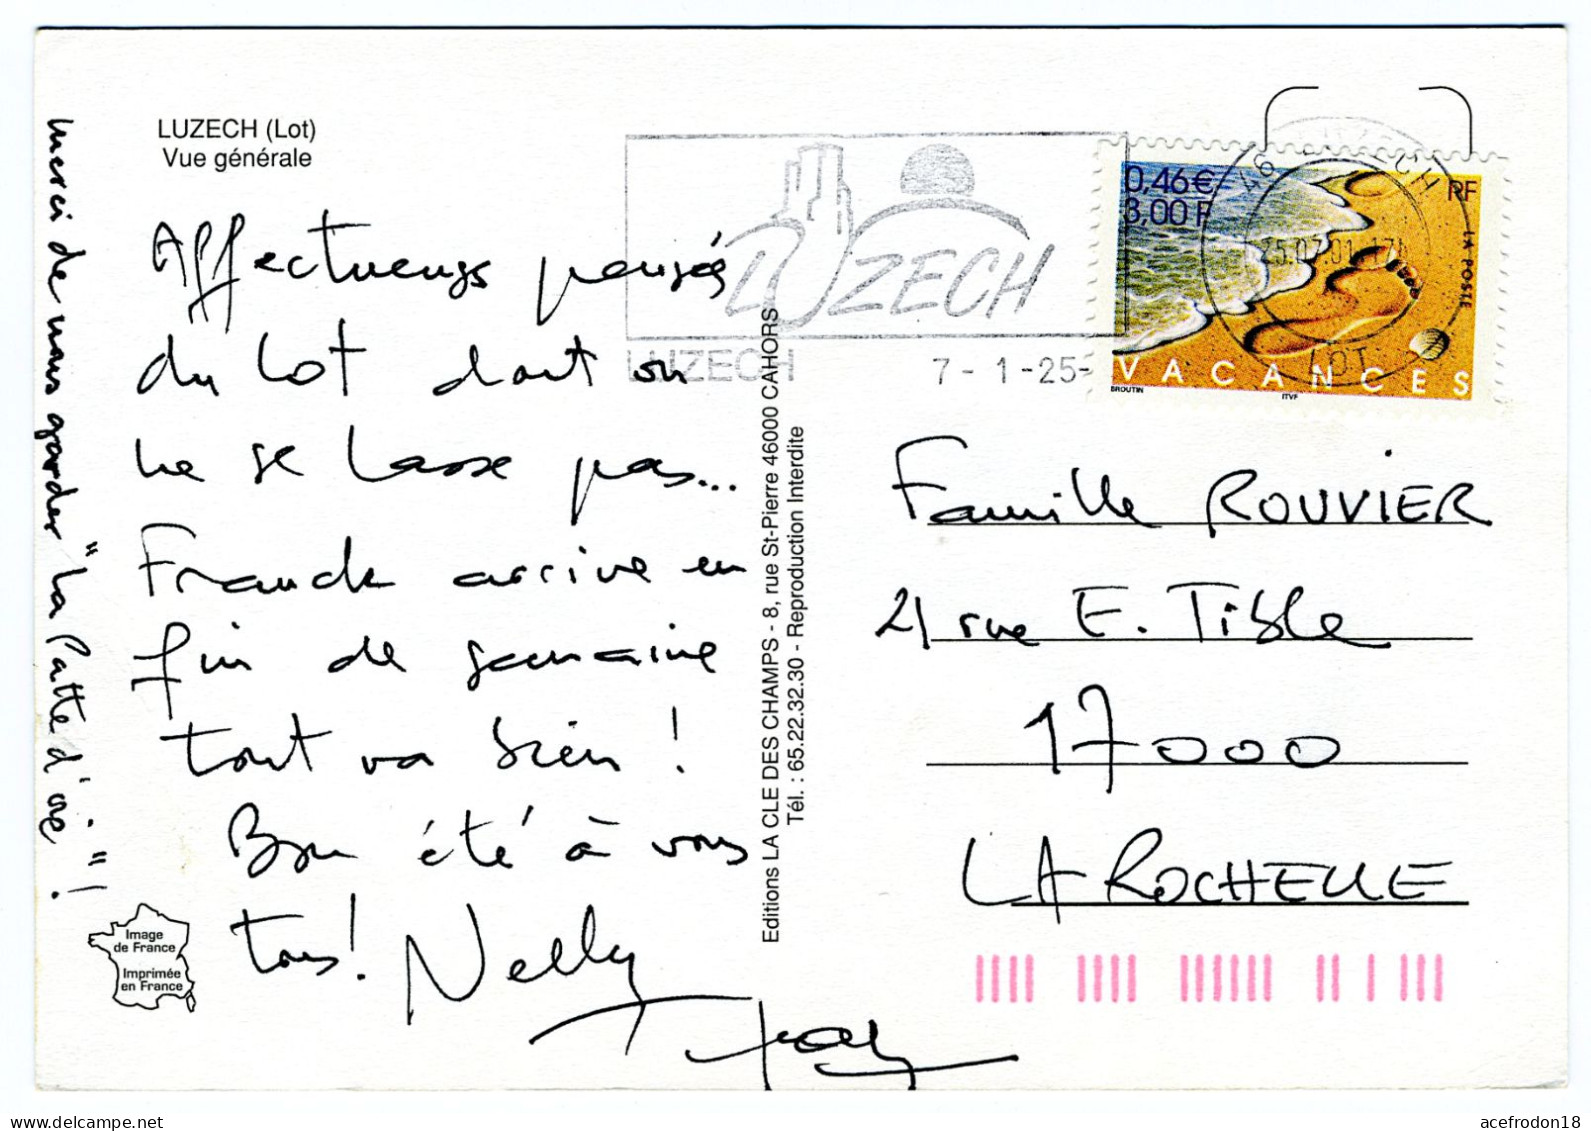 LUZECH (Lot)
Vue générale
Affectueuses pensées
du Lot dont on
ne se lasse pas...
Franck arrive en
fin de semaine
tout va bien !
Bon été à vous
tous! Nelly
merci de nous garder "la Patte d'oie"!
Image
de France
Imprimée
en France
Editions LA CLE DES CHAMPS - 8, rue St-Pierre 46000 CAHORS
Tél. : 65.22.32.30 - Reproduction Interdite
LUZECH
LUZECH
7-1-25-
0,46€
3,00 F
RF
LA POSTE
VACANCES
BROUTIN
ITVF
46 LUZECH
25.07.01 17H
LOT
Famille ROUVIER
21 rue E. Tible
17000
LA ROCHELLE
acefrodon18